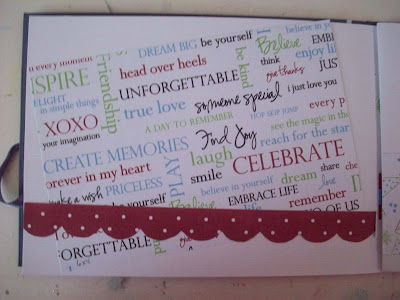 every moment DREAM BIG be yourself believe in y
SPIRE Friendship head over heels be kind Believe EMBR
think enjoy life
ELIGHT UNFORGETTABLE give thanks JUS
in simple things true love someone special i just love you
XOXO A DAY TO REMEMBER HOP SKIP JUMP every p
your imagination Find Joy see the magic in the
CREATE MEMORIES PLAY laugh reach for the star
orever in my heart smile CELEBRATE
make a wish PRICELESS believe in yourself dream share
love cher
EMBRACE LIFE remember
US
ORGETTABLE